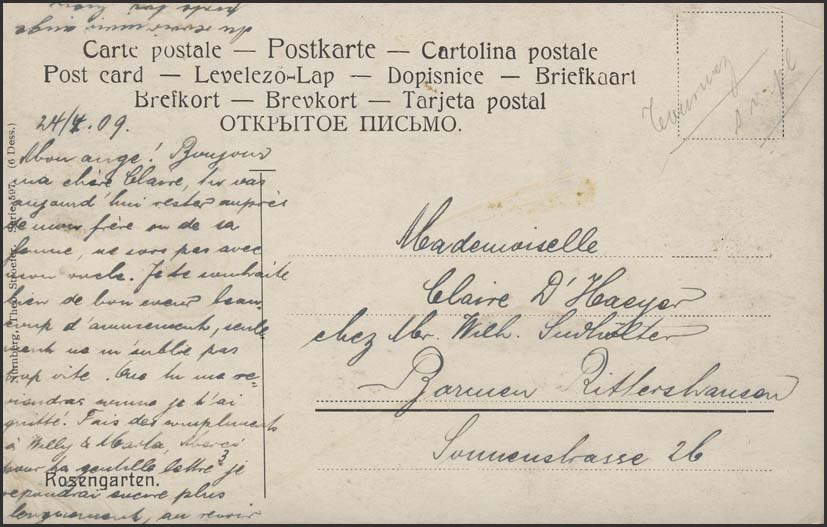 du revoir mon ange
Carte postale — Postkarte — Cartolina postale
Post card — Levelezö-Lap — Dopisnice — Briefkaart
Brefkort — Brevkort — Tarjeta postal
ОТКРЫТОЕ ПИСЬМО.
Tournez
24/4.09.
Mon ange! Bonjour
ma chère Claire, tu vas
aujourd'hui rester auprès
de mon frère ou de sa
bonne, ne sors pas avec
mon oncle. Je te souhaite
bien de bon coeur beau-
coup d'amusement, seule-
ment ne m'oublie pas
trop vite. Que tu me re-
viendras comme je t'ai
quitté. Fais des compliments
à Willy & Marta, merci
pour ta gentille lettre, je
repondrai encore plus
longuement, au revoir
Nürnberg, Theo. Stroefer. Serie 597. (6 Dess.)
Rosengarten.
Mademoiselle
Claire D'Haeyer
chez Mr. Wilh. Sudhölter
Barmen Rittershausen
Sonnenstrasse 26